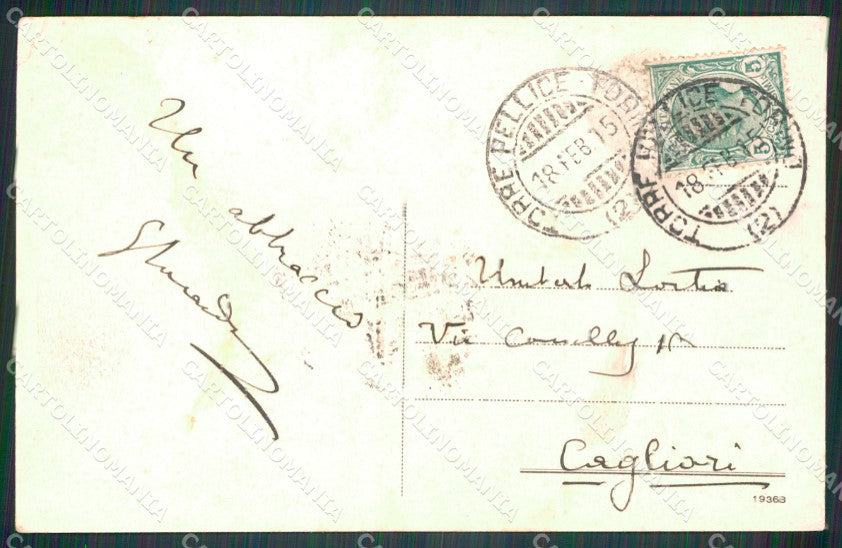 Un abbraccio
TORRE PELLICE TORINO
18 FEB 15
(2)
TORRE PELLICE TORINO
18 FEB 15
(2)
5 5
Umberto
Via
Cagliari
19368
CARTOLINOMANIA